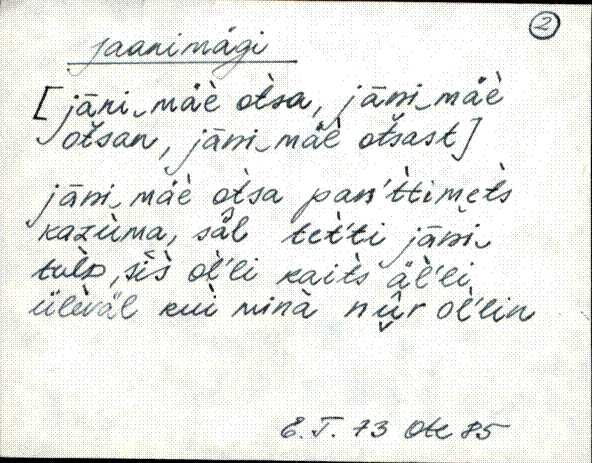 ②
jaanimägi
[jāni‿mäè òtsa, jāni‿mäè
òtsan, jāni‿mäè òtsast]
jāni‿mäè òtsa pan'ttimèts
kazùma, säl tèt'ti jāni‿
tulò, sìs òl'li kaìts äl'li
ülèväl kuì minà nūr òl'lin
E.T. 73 Ote 85